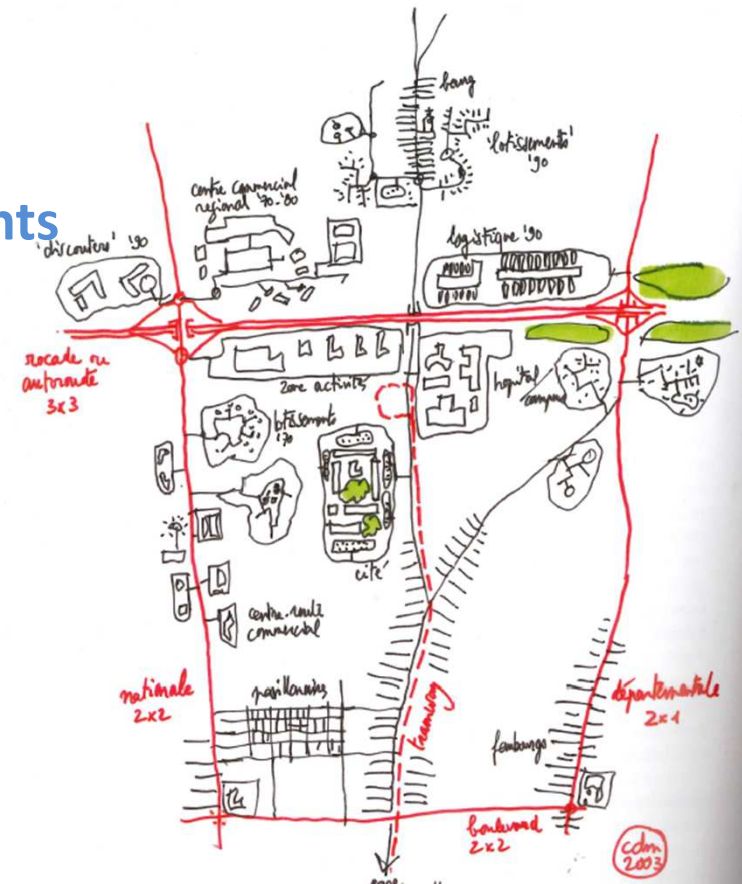 bourg
'lotissements'
'90
centre commercial
regional '70-'80
nts
'discounters' '90
logistique '90
rocade ou
autoroute
3x3
zone activités
hopital
campus
lotissements
'70
cité
centre-route
commercial
nationale
2x2
pavillonnaires
tramway
départementale
2x1
faubourgs
boulevard
2x2
cdm
2003